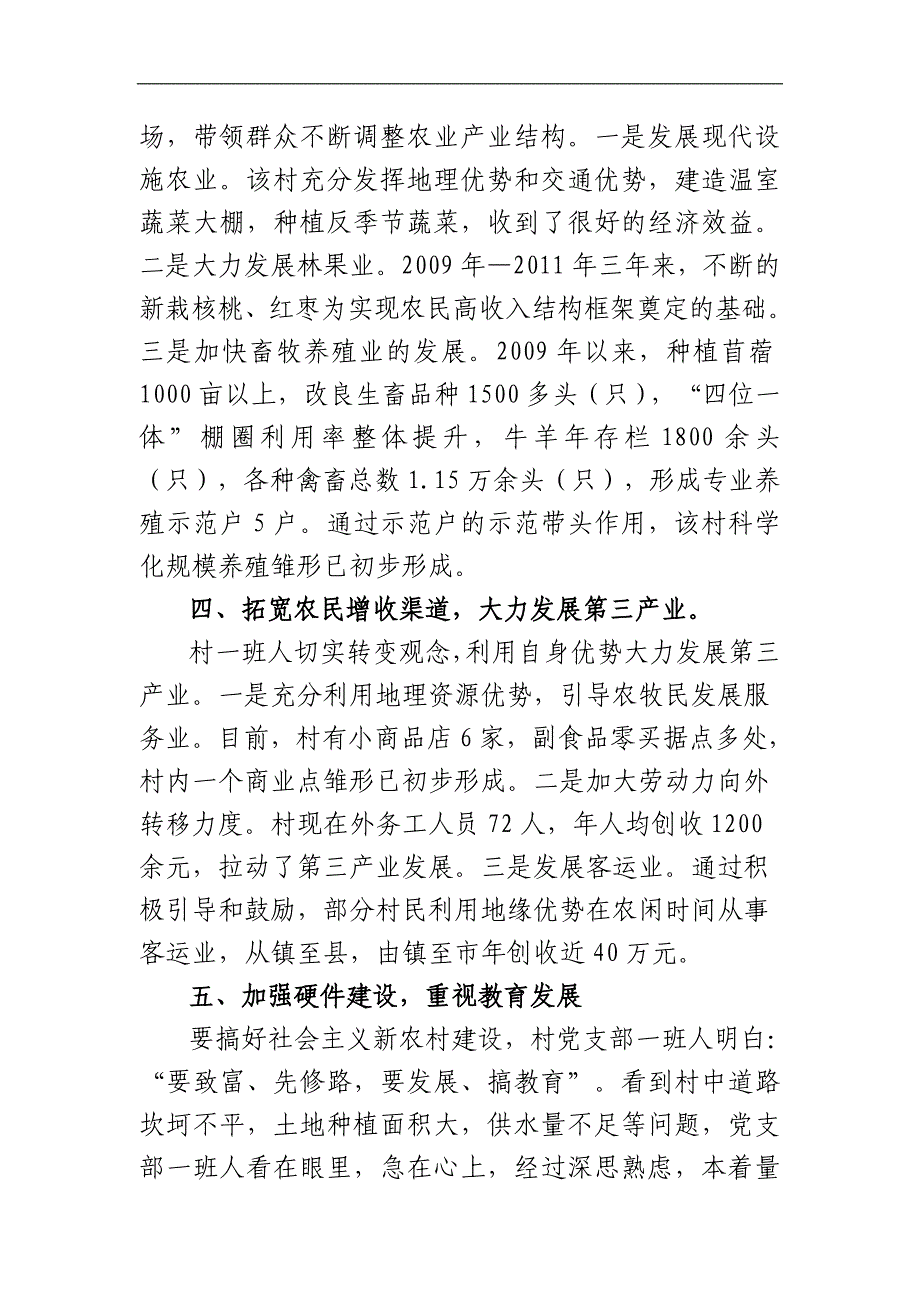 场，带领群众不断调整农业产业结构。一是发展现代设
施农业。该村充分发挥地理优势和交通优势，建造温室
蔬菜大棚，种植反季节蔬菜，收到了很好的经济效益。
二是大力发展林果业。2009 年—2011 年三年来，不断的
新栽核桃、红枣为实现农民高收入结构框架奠定的基础。
三是加快畜牧养殖业的发展。2009 年以来，种植苜蓿
1000 亩以上，改良生畜品种 1500 多头（只），“四位一
体”棚圈利用率整体提升，牛羊年存栏 1800 余头
（只），各种禽畜总数 1.15 万余头（只），形成专业养
殖示范户 5 户。通过示范户的示范带头作用，该村科学
化规模养殖雏形已初步形成。
四、拓宽农民增收渠道，大力发展第三产业。
村一班人切实转变观念，利用自身优势大力发展第三
产业。一是充分利用地理资源优势，引导农牧民发展服
务业。目前，村有小商品店 6 家，副食品零买据点多处，
村内一个商业点雏形已初步形成。二是加大劳动力向外
转移力度。村现在外务工人员 72 人，年人均创收 1200
余元，拉动了第三产业发展。三是发展客运业。通过积
极引导和鼓励，部分村民利用地缘优势在农闲时间从事
客运业，从镇至县，由镇至市年创收近 40 万元。
五、加强硬件建设，重视教育发展
要搞好社会主义新农村建设，村党支部一班人明白：
“要致富、先修路，要发展、搞教育”。看到村中道路
坎坷不平，土地种植面积大，供水量不足等问题，党支
部一班人看在眼里，急在心上，经过深思熟虑，本着量